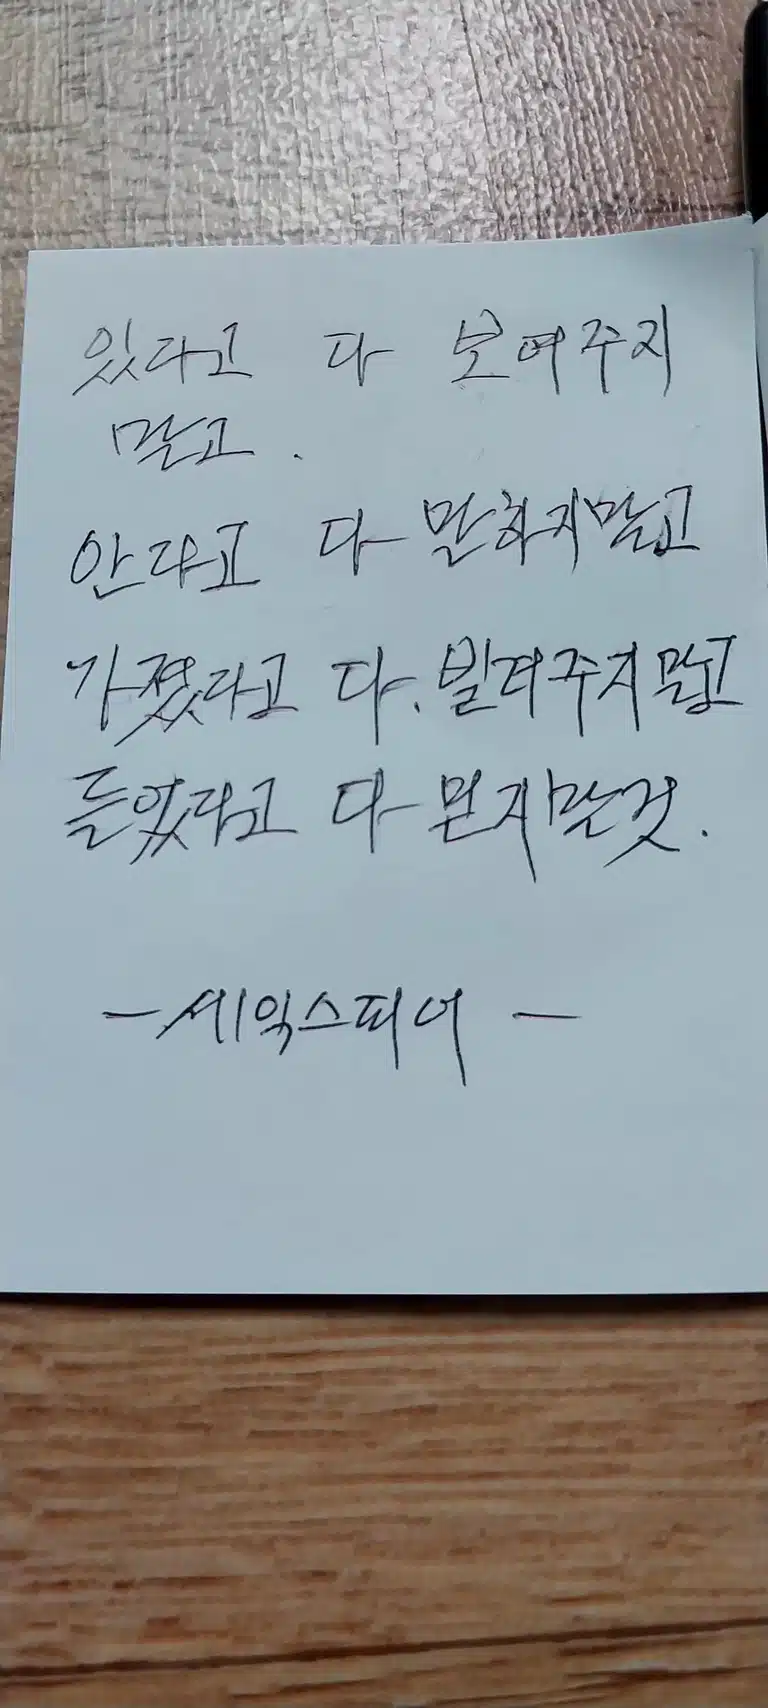 있다고 다 보여주지
말고.
안다고 다 말하지말고
가졌다고 다. 빌려주지말고
들었다고 다 믿지말것.
- 세익스피어 -